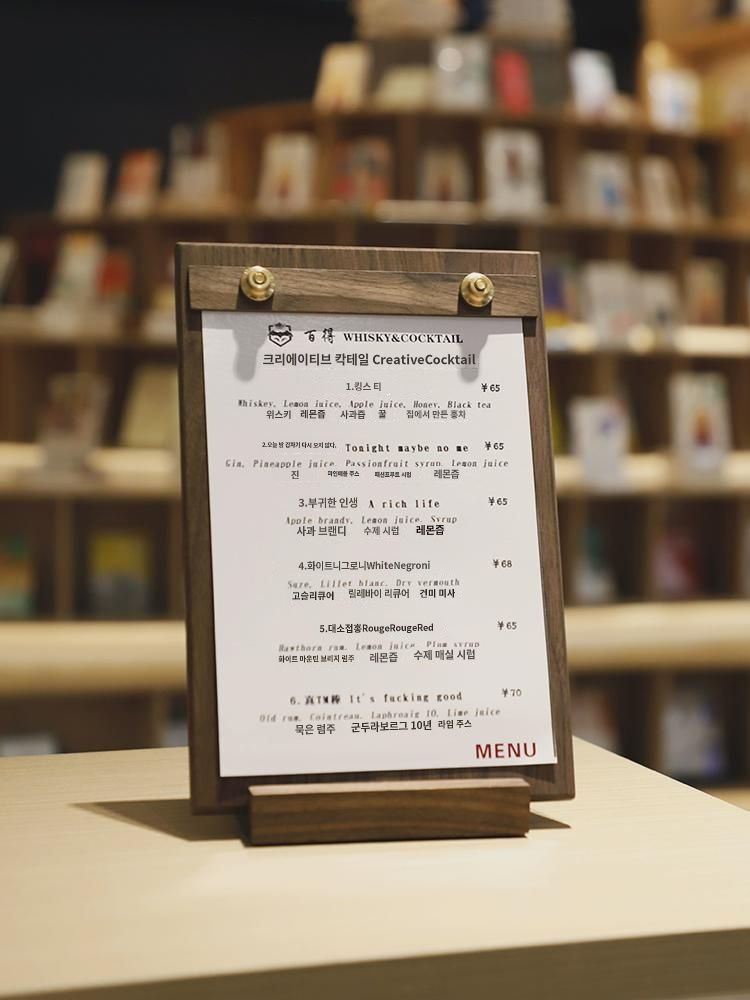 百得 WHISKY&COCKTAIL
크리에이티브 칵테일 CreativeCocktail
1.킹스 티 ¥65
Whiskey, Lemon juice, Apple juice, Honey, Black tea
위스키 레몬즙 사과즙 꿀 집에서 만든 홍차
2.오늘 밤 갑자기 다시 오지 않다. Tonight maybe no me ¥65
Gin, Pineapple juice, Passionfruit syrup, Lemon juice
진 파인애플 주스 패션프루트 시럽 레몬즙
3.부귀한 인생 A rich life ¥65
Apple brandy, Lemon juice, Syrup
사과 브랜디 수제 시럽 레몬즙
4.화이트니그로니WhiteNegroni ¥68
Suze, Lillet blanc, Dry vermouth
고슬리큐어 릴레바이 리큐어 견미 미사
5.대소접홍RougeRougeRed ¥65
Hawthorn rum, Lemon juice, Plum syrup
화이트 마운틴 브리지 럼주 레몬즙 수제 매실 시럽
6.真TM棒 It's fucking good ¥70
Old rum, Cointreau, Laphroaig 10, Lime juice
묵은 럼주 군두라보르그 10년 라임 주스
MENU